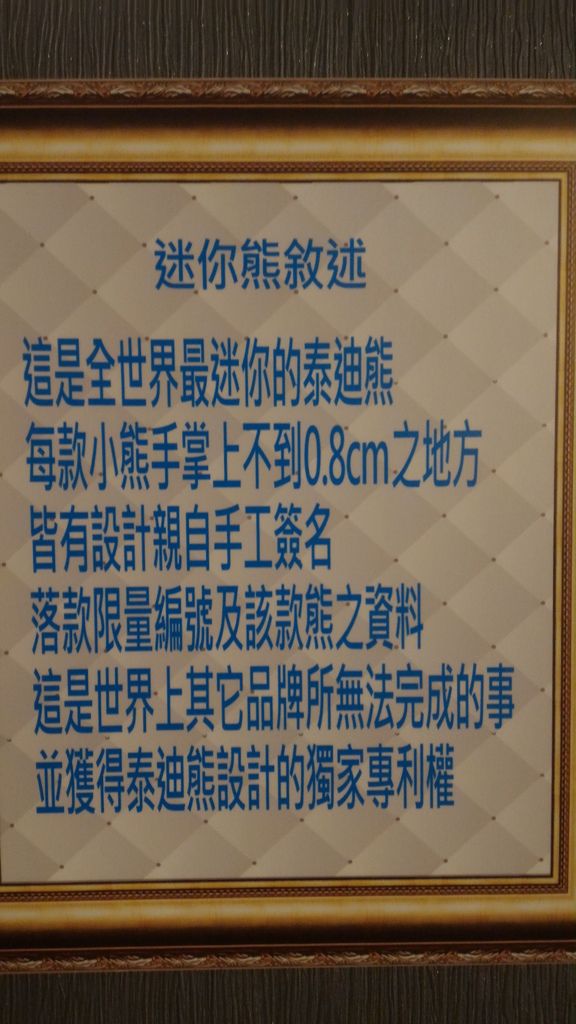 迷你熊敘述
這是全世界最迷你的泰迪熊
每款小熊手掌上不到0.8cm之地方
皆有設計親自手工簽名
落款限量編號及該款熊之資料
這是世界上其它品牌所無法完成的事
並獲得泰迪熊設計的獨家專利權